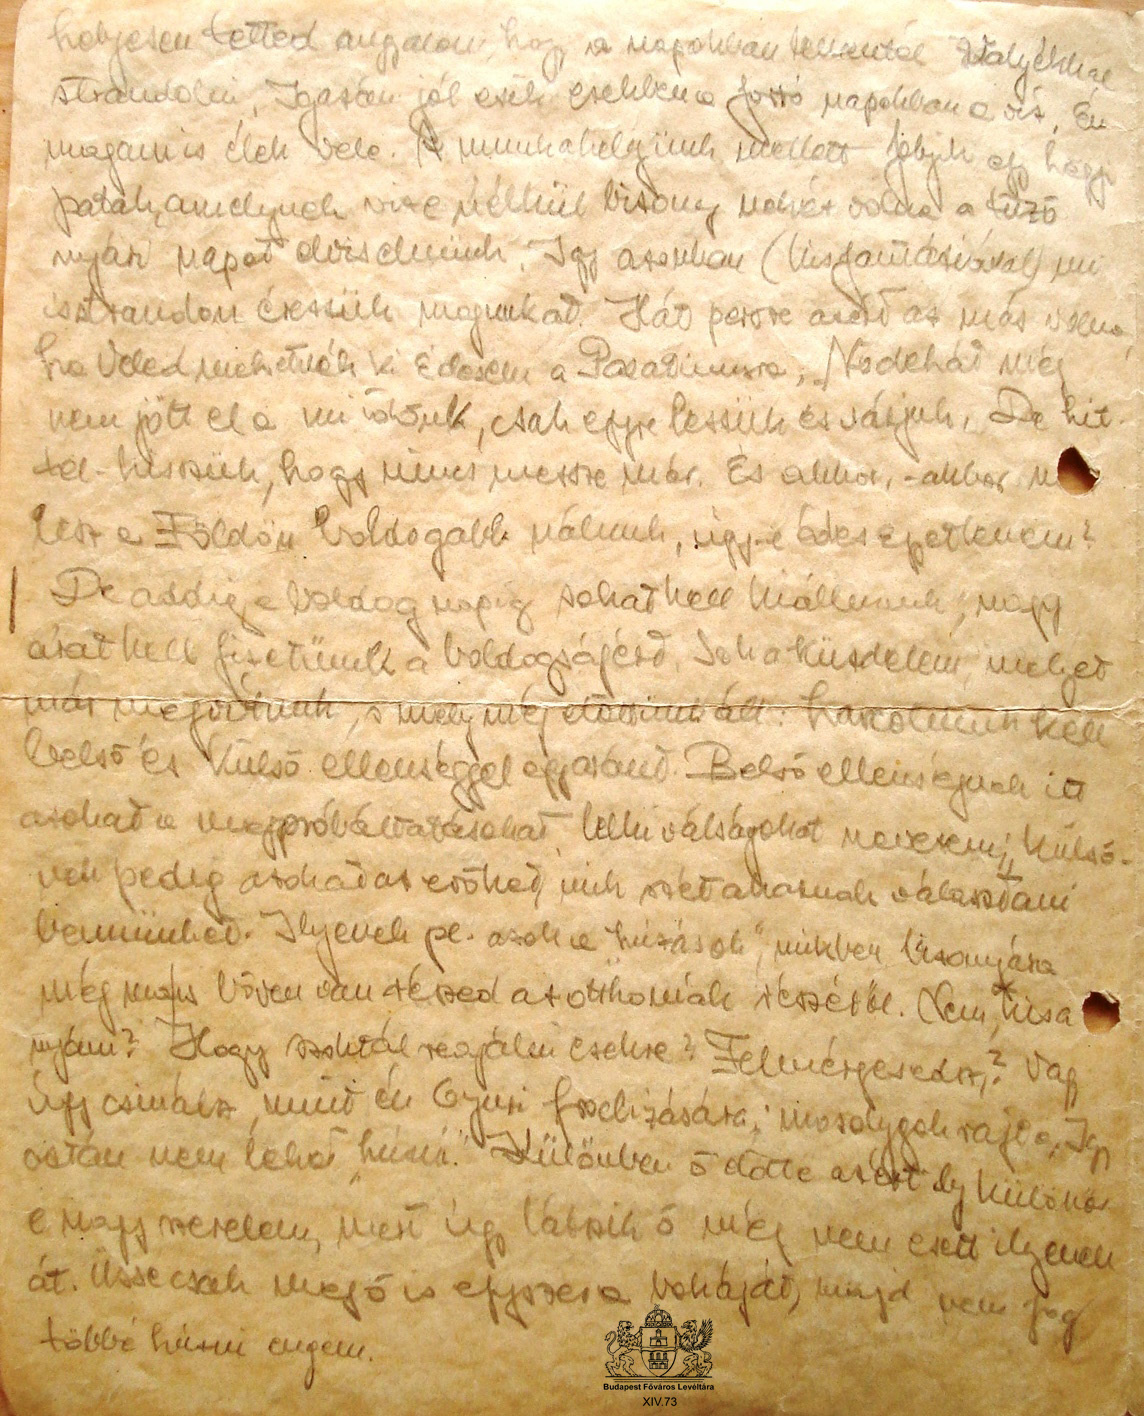 helyesen tetted angyalom, hogy a napokban lementél Balyékkal
strandolni. Igazán jól esik ezekben a forró napokban a víz. Én
magam is élek vele. A munkahelyünk mellett folyik egy hegyi
patak, amelynek vize nélkül bizony nehéz volna a tűző
nyári napot elviselnünk. Így azonban (kis fantáziával) mi
is strandon érezzük magunkat. Hát persze azért az más volna,
ha Veled mehetnék ki Édesem a Palatinusra. Nodehát még
nem jött el a mi időnk, csak egyre lessük és várjuk. De hit-
tel hisszük, hogy nincs messze már. És akkor, - akkor n
lesz a Földön boldogabb nálunk, ugye édes egyetlenem?
De addig a boldog napig sokat kell kiállnunk, nagy
árat kell fizetünk a boldogságért. Sok a küzdelem, melyet
már megvívtunk, s mely még előttünk áll: harcolnunk kell
belső és külső ellenséggel egyaránt. Belső ellenségnek itt
azokat a megpróbáltatásokat, lelki válságokat nevezem, külső-
nek pedig azokat az erőket, mik szét akarnak választani
bennünket. Ilyenek pl. azok a "húzások", mikben bizonyára
még ma is bőven van részed az otthoniak részéről. Nem húsa
nyám? Hogy szoktál reagálni ezekre? Felmérgesedsz? Vagy
úgy csinálsz, mint én Gyuri froclizására; mosolygok rajta. Így
aztán nem lehet "húzni." Különben ő előtte azért oly különös
e nagy szerelem, mert úgy látszik ő még nem esett ilyenen
át. Üsse csak meg ő is egyszer a bokáját, majd nem fog
többé húzni engem.
Budapest Főváros Levéltára
XIV.73